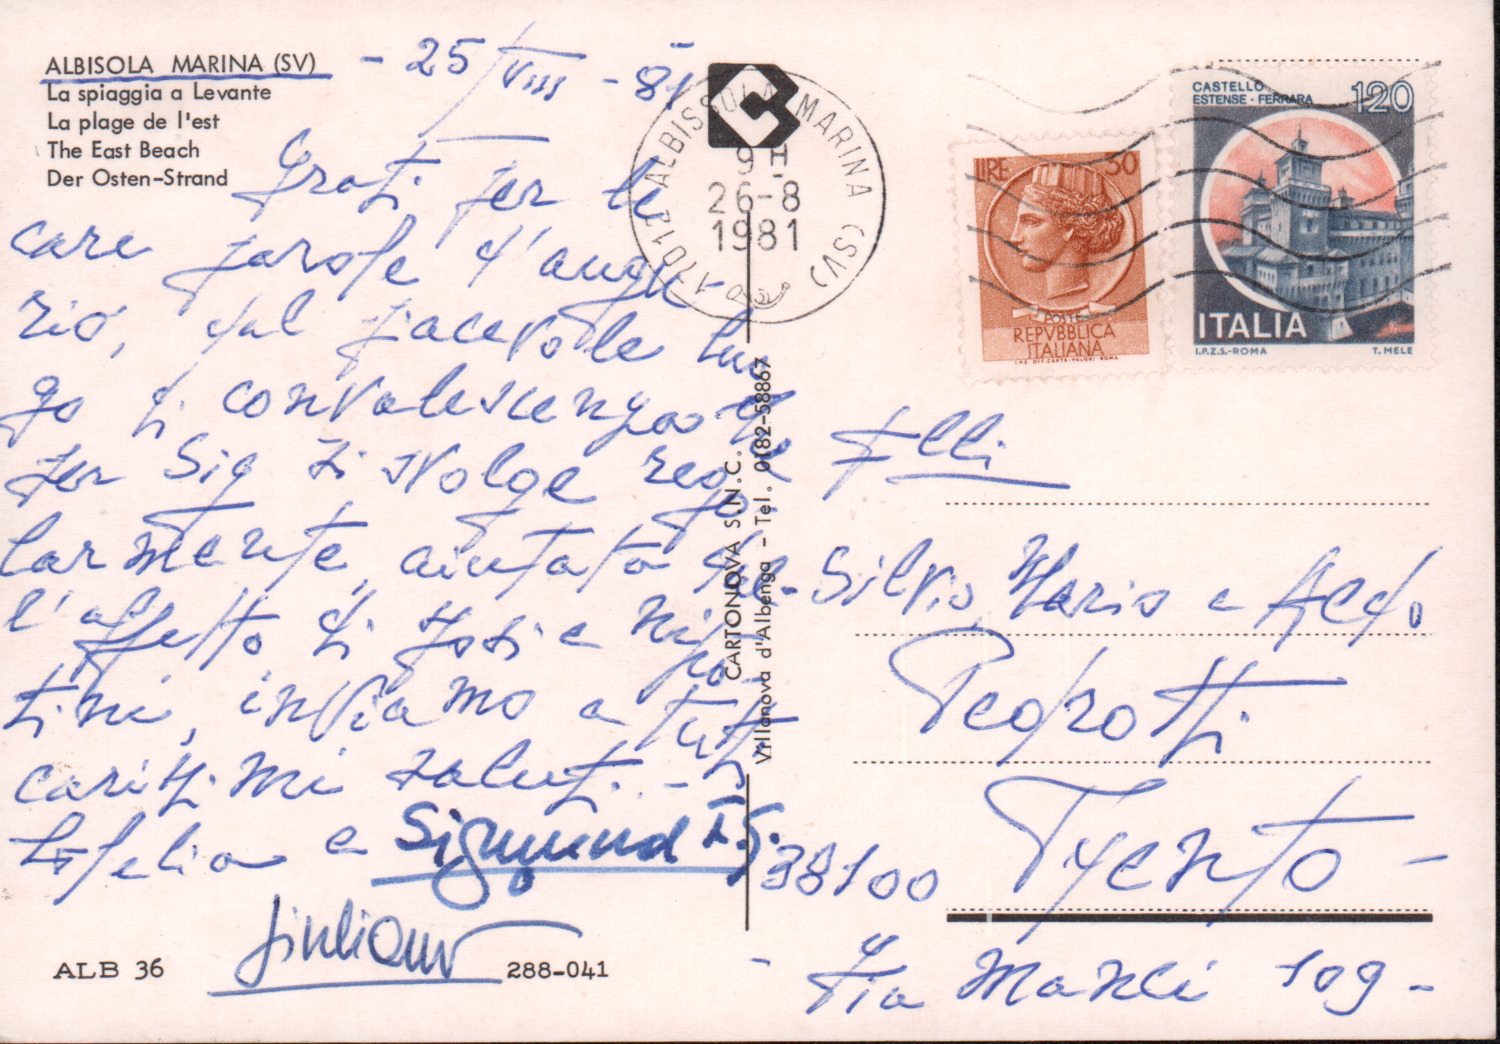 ALBISOLA MARINA (SV) - 25/VIII - 81
La spiaggia a Levante
La plage de l'est
The East Beach
Der Osten-Strand
Grati per le
care parole d'augu-
rio, dal piacevole luo
go di convalescenza
per Sig. si svolge rego
larmente, aiutata dal-
l'affetto di e nipo-
tini, inviamo a tutti
carissimi saluti. -
Ofelia e Sigmund
Giuliano
ALB 36
288-041
CARTONOVA S.N.C.
Villanova d'Albenga - Tel. 0182-58867
17012 ALBISSOLA MARINA (SV)
9 H
26-8
1981
LIRE 50
POSTE
REPVBBLICA
ITALIANA
CASTELLO
ESTENSE - FERRARA
120
ITALIA
I.P.Z.S.-ROMA T. MELE
F.lli
Silvio, Mario e Aldo
Pedrotti
38100 Trento -
- Via Manci 109 -